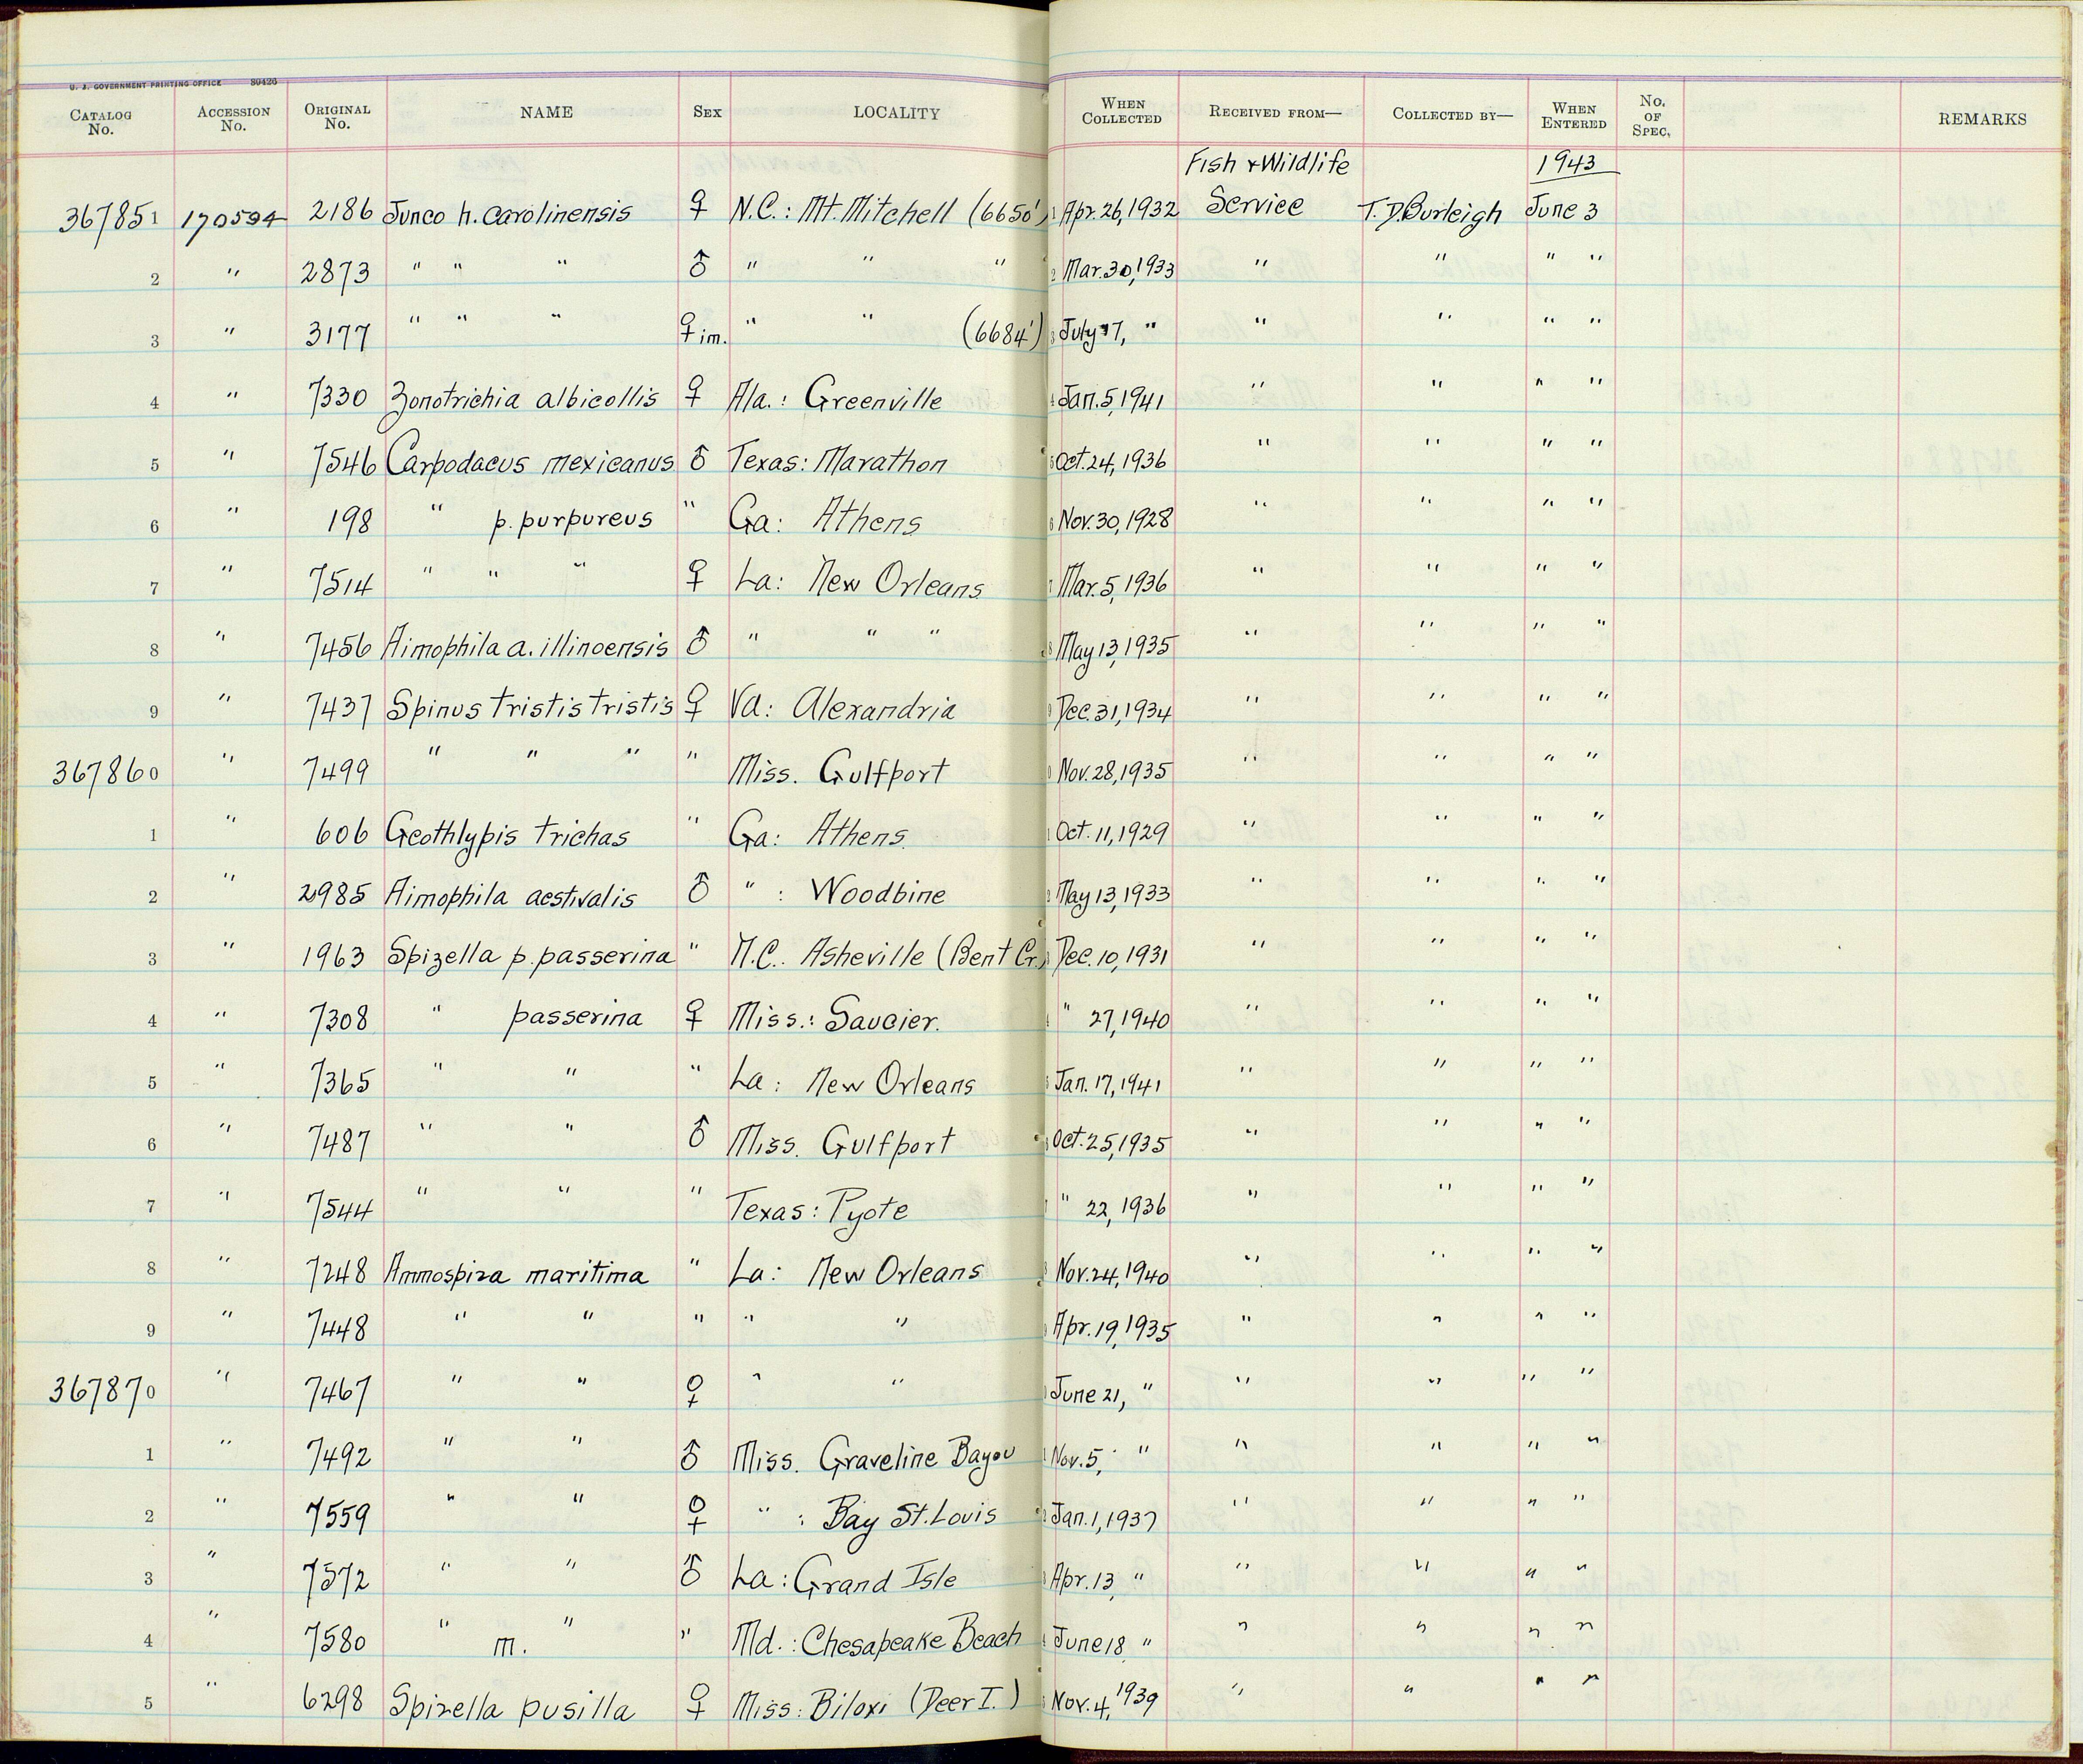 U. S. GOVERNMENT PRINTING OFFICE 89426
CATALOG No. ACCESSION No. ORIGINAL No. NAME SEX LOCALITY WHEN COLLECTED RECEIVED FROM— COLLECTED BY— WHEN ENTERED No. OF SPEC. REMARKS
Fish & Wildlife 1943
367851 170594 2186 Junco h. carolinensis ♀ N.C.: Mt. Mitchell (6650') 1 Apr. 26, 1932 Service T. D. Burleigh June 3
2 " 2873 " " " ♂ " " " 2 Mar. 30, 1933 " " " "
3 " 3177 " " " ♀ im. " " (6684') 3 July 17, " " " " "
4 " 7330 Zonotrichia albicollis ♀ Ala.: Greenville 4 Jan. 5, 1941 " " " "
5 " 7546 Carpodacus mexicanus ♂ Texas: Marathon 5 Oct. 24, 1936 " " " "
6 " 198 " p. purpureus " Ga: Athens 6 Nov. 30, 1928 " " " "
7 " 7514 " " " ♀ La: New Orleans 7 Mar. 5, 1936 " " " "
8 " 7456 Aimophila a. illinoensis ♂ " " " 8 May 13, 1935 " " " "
9 " 7437 Spinus tristis tristis ♀ Va: Alexandria 9 Dec. 31, 1934 " " " "
367860 " 7499 " " " " Miss. Gulfport 0 Nov. 28, 1935 " " " "
1 " 606 Geothlypis trichas " Ga: Athens 1 Oct. 11, 1929 " " " "
2 " 2985 Aimophila aestivalis ♂ " : Woodbine 2 May 13, 1933 " " " "
3 " 1963 Spizella p. passerina " N.C. Asheville (Bent Cr.) 3 Dec. 10, 1931 " " " "
4 " 7308 " passerina ♀ Miss.: Saucier. 4 " 27, 1940 " " " "
5 " 7365 " " " La: New Orleans 5 Jan. 17, 1941 " " " "
6 " 7487 " " ♂ Miss. Gulfport 6 Oct. 25, 1935 " " " "
7 " 7544 " " " Texas: Pyote 7 " 22, 1936 " " " "
8 " 7248 Ammospiza maritima " La: New Orleans 8 Nov. 24, 1940 " " " "
9 " 7448 " " " " " 9 Apr. 19, 1935 " " " "
367870 " 7467 " " ♀ " " 0 June 21, " " " " "
1 " 7492 " " ♂ Miss. Graveline Bayou 1 Nov. 5, " " " " "
2 " 7559 " " ♀ " : Bay St. Louis 2 Jan. 1, 1937 " " " "
3 " 7572 " " ♂ La: Grand Isle 3 Apr. 13, " " " " "
4 " 7580 " m. " " Md.: Chesapeake Beach 4 June 18 " " " " "
5 " 6298 Spizella pusilla ♀ Miss: Biloxi (Deer I.) 5 Nov. 4, 1939 " " " "